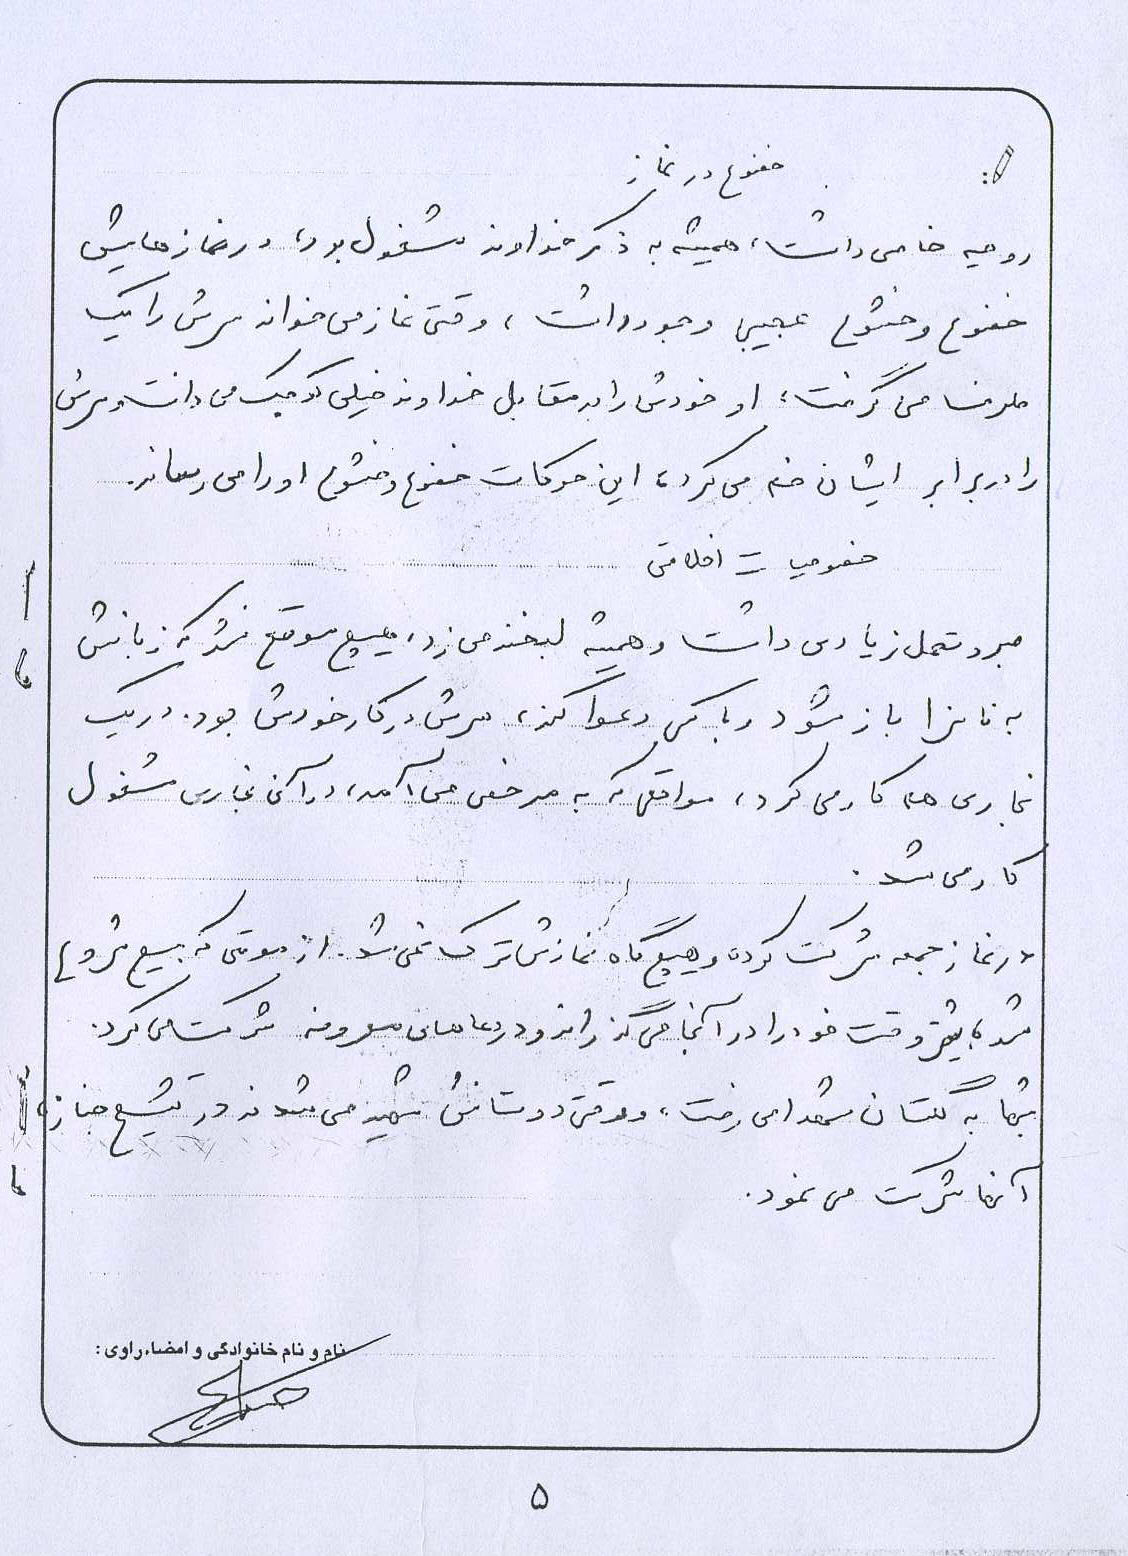 خضوع در نماز
روحیه خاصی داشت، همیشه به ذکر خداوند مشغول بود، در نمازهایش
خضوع و خشوع عجیبی وجود داشت، وقتی نماز می خواند سرش را یک
طرف می گرفت، او خودش را در مقابل خداوند خیلی کوچک می دانست و سرش
را در برابر ایشان خم می کرد، این حرکات خضوع و خشوع او را می رساند.
خصوصیات اخلاقی
صبر و تحمل زیادی داشت و همیشه لبخند می زد، هیچ موقع نشد که زبانش
به ناسزا باز شود و با کسی دعوا کند، سرش در کار خودش بود. در یک
نجاری هم کار می کرد، مواقعی که به مرخصی می آمد، در آن نجاری مشغول
کار می شد.
در نماز جمعه شرکت کرده و هیچ گاه نمازش ترک نمی شد. از موقعی که بسیج شروع
شد، بیشتر وقت خود را در آنجا می گذراند و در دعاهای معروفه شرکت می کرد.
شبها به گلستان شهدا می رفت، و وقتی دوستانش شهید می شدند در تشییع جنازه
آنها شرکت می نمود.
نام و نام خانوادگی و امضاء راوی:
۵